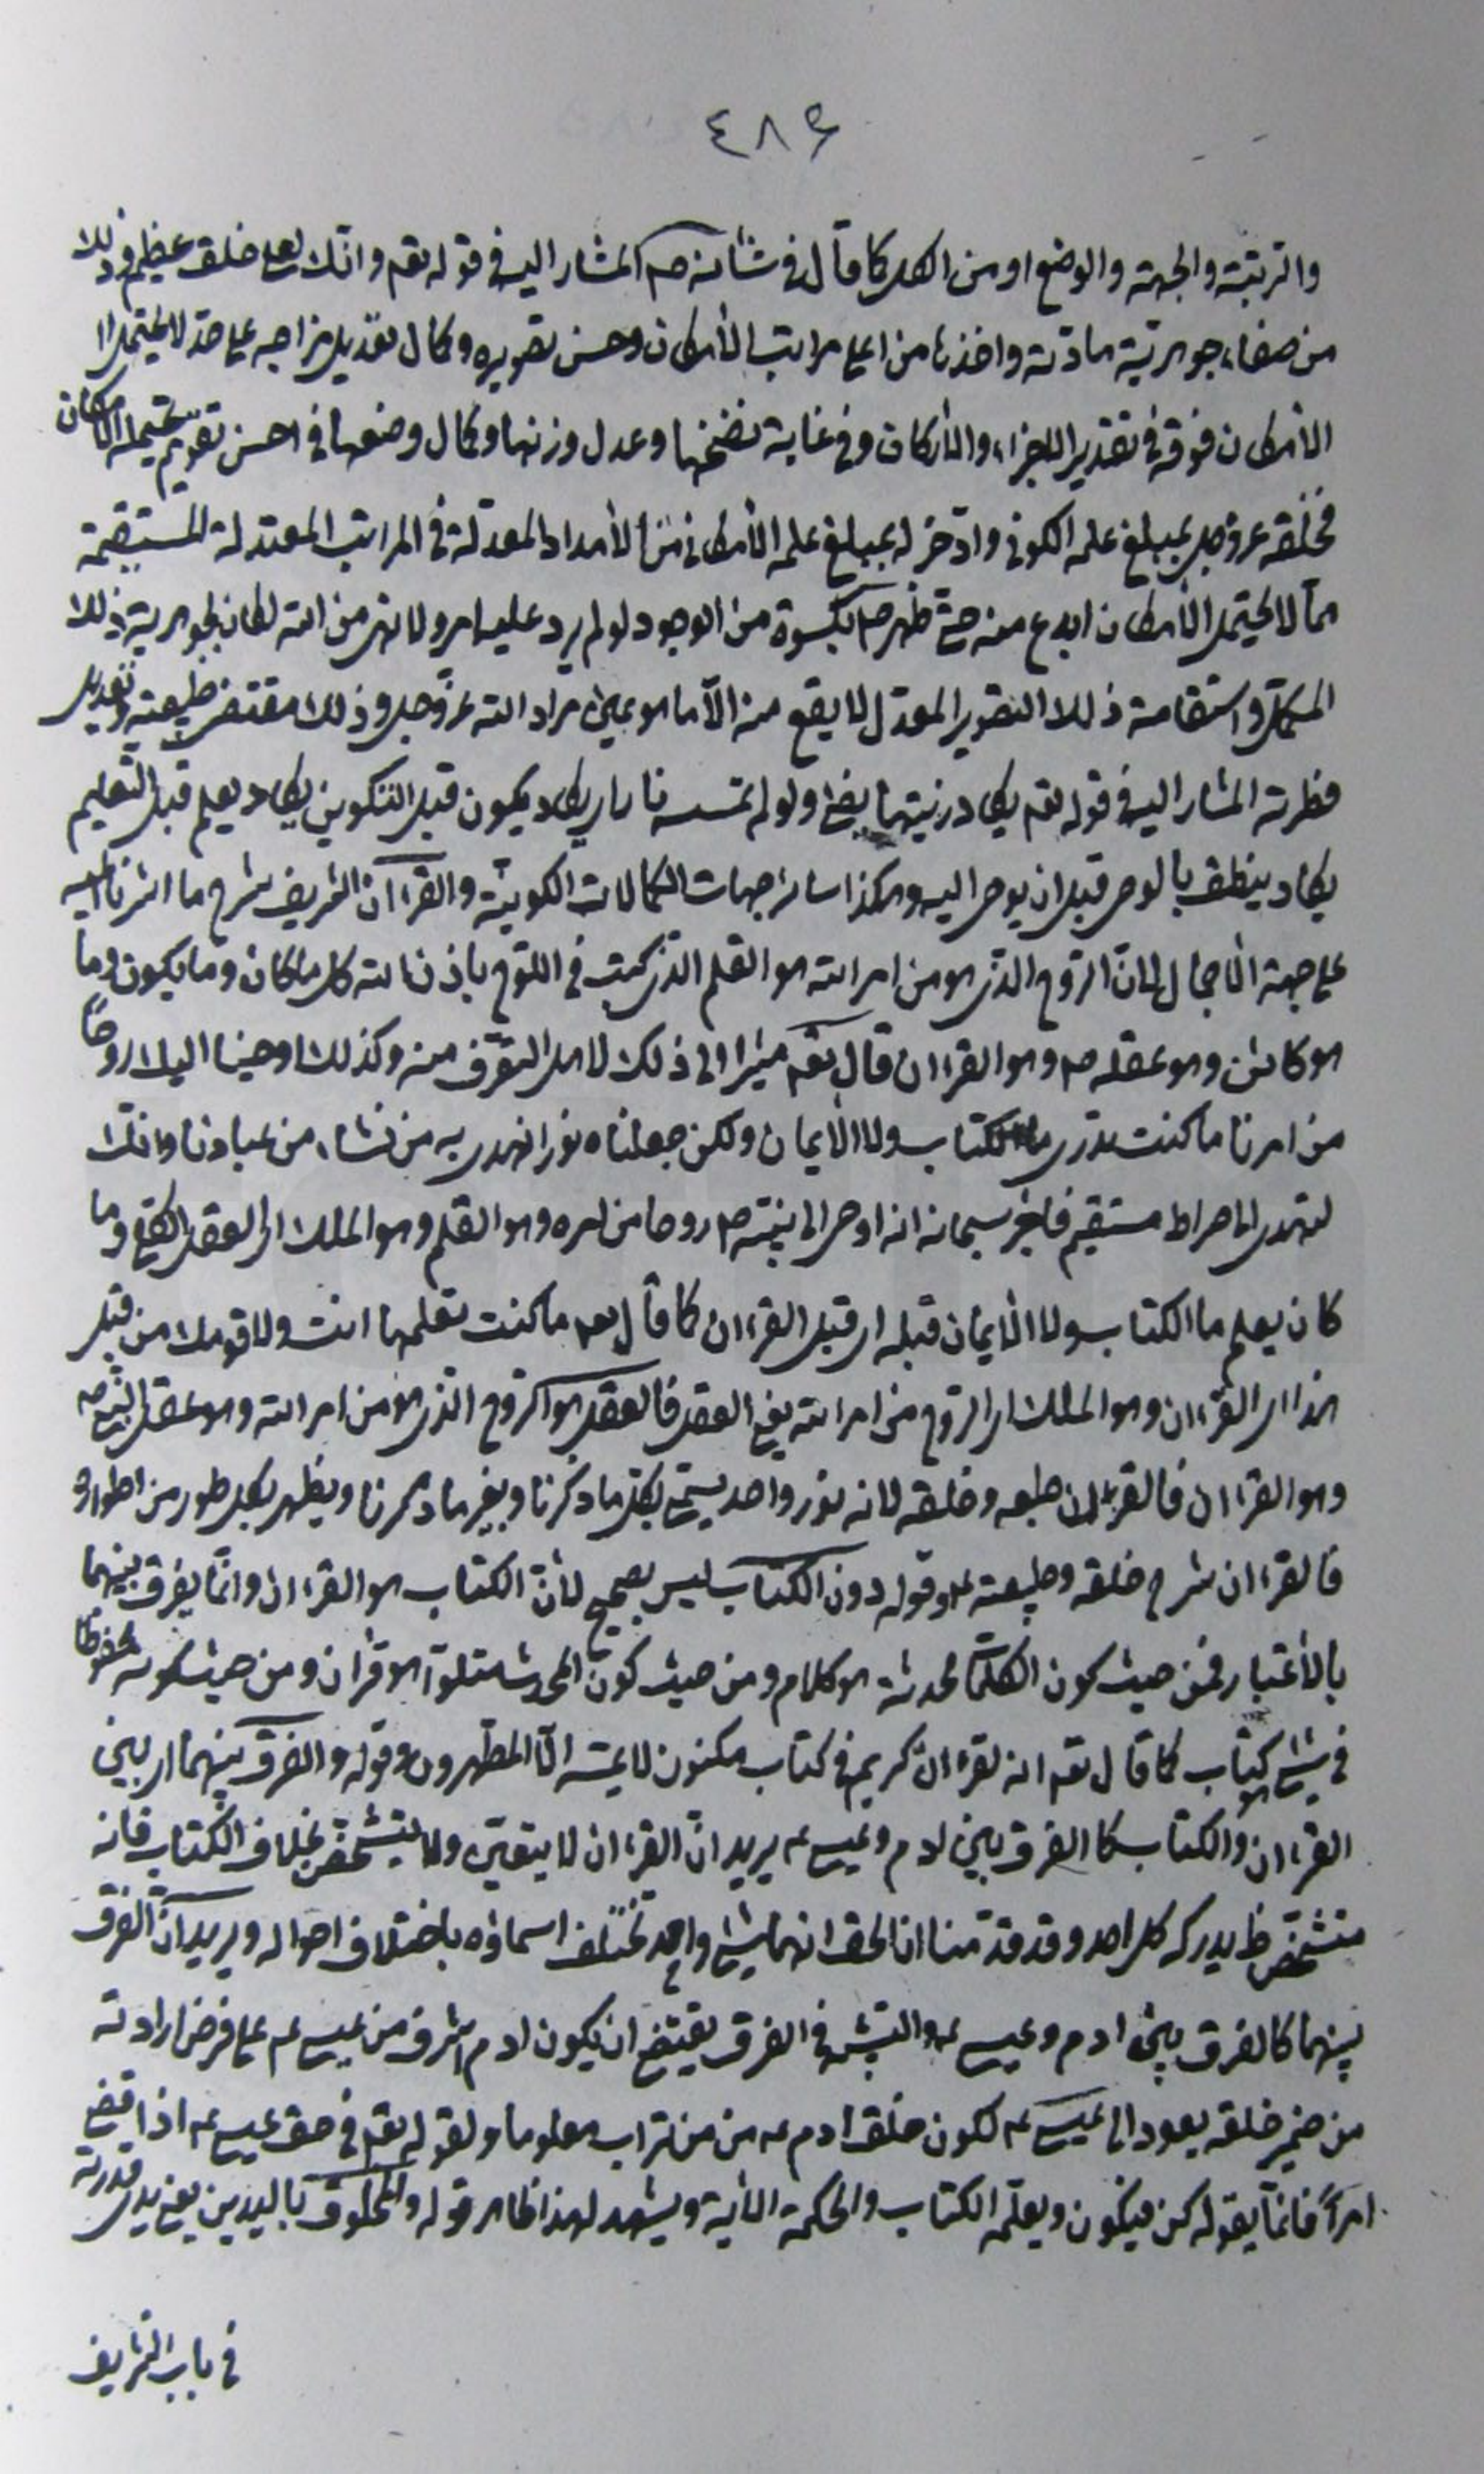 ٤٨٤
والرتبة والجهة والوضع او من الكل كما قال في شانه صم المشار اليه في قوله تعم وانّك لعلى خلق عظيم وذلك
من صفاء جوهرية مادته واخذها من اعلى مراتب الأمكان وحسن تصويره وكمال تعديل مزاجه على حدّ لا يحتمل
الأمكان فوقه في تقدير الاجزاء والأركان وفي غاية نضجها وعدل وزنها وكمال وضعها في احسن تقويم يحتمله الأمكان
فخلقه عز وجل بمبلغ علمه الكوني وادّخر له بمبلغ علمه الأمكاني من الأمداد المعدلة في المراتب المعتدلة المستقيمة
مما لا يحتمل الأمكان ابدع منه حتى ظهر صم بكسوة من الوجود لو لم يرد عليه امر ولا نهي من الله لكان بجوهرية ذلك
المكمّل واستقامة ذلك التصوير المعدل لا يقع منه الّا ما هو عين مراد الله عز وجل وذلك مقتضى طبيعته وتعديل
فطرته المشار اليه في قوله تعم يكاد زيتها يضئ ولو لم تمسسه نار اي يكاد يكون قبل التكوين يكاد يعلم قبل التعليم
يكاد ينطق بالوحي قبل ان يوحى اليه وهكذا ساير جهات الكمالات الكونية والقرءان الشريف شرح ما اشرنا اليه
على جهة الأجمال لانّ الروح الذي هو من امر الله هو القلم الذي كتب في اللوح باذن الله كل ما كان وما يكون وما
هو كائن وهو عقله صم وهو القرءان قال تعم مشيرا الى ذلك لاهل التعرّف منه وكذلك اوحينا اليك روحًا
من امرنا ما كنت تدري ما الكتاب ولا الأيمان ولكن جعلناه نورا نهدي به من نشاء من عبادنا وانك
لتهدي الى صراط مستقيم فاخبر سبحانه انه اوحى الى نبيّه صم روحا من امره وهو القلم وهو الملك اي العقل الكلي وما
كان يعلم ما الكتاب ولا الأيمان قبله اي قبل القرءان كما قال تعم ما كنت تعلمها انت ولا قومك من قبل
هذا اي القرءان وهو الملك اي الروح من امر الله يعني العقل فالعقل هو الروح الذي هو من امر الله وهو عقل النبي صم
وهو القرءان فالقرءان طبعه وخلقه لانه نور واحد يسمّى بكل ما ذكرنا وبغير ما ذكرنا ويظهر بكل طور من اطواره
فالقرءان شرح خلقه وطبيعته صم وقوله دون الكتاب ليس بصحيح لانّ الكتاب هو القرءان وانّما يفرق بينهما
بالأعتبار فمن حيث كون الكلمات محدثة هو كلام ومن حيث كون المحدث متلوّا هو قران ومن حيث كونه محفوظا
في شئ هو كتاب كما قال تعم انه لقرءان كريم في كتاب مكنون لا يمسّه الّا المطهرون وقوله والفرق بينهما اي بين
القرءان والكتاب كالفرق بين ادم وعيسى عم يريد انّ القرءان لا يتعيّن ولا يتشخص بخلاف الكتاب فانه
متشخّص يدركه كل احد وقد قدّمنا ان الحق انهما شئ واحد تختلف اسماؤه باختلاف احواله ويريد انّ الفرق
بينهما كالفرق بين ادم وعيسى عم والتشبيه في الفرق يقتضي ان يكون ادم اشرف من عيسى عم على فرض ارادته
من ضمير خلقه يعود الى عيسى عم لكون خلق ادم عم من تراب معلوما ولقوله تعم في حق عيسى عم اذا قضى
امرًا فانمّا يقول له كن فيكون ويعلّمه الكتاب والحكمة الأية ويشهد لهذا ظاهر قوله والمخلوق باليدين يعني بيدي قدرته
في باب الشريف